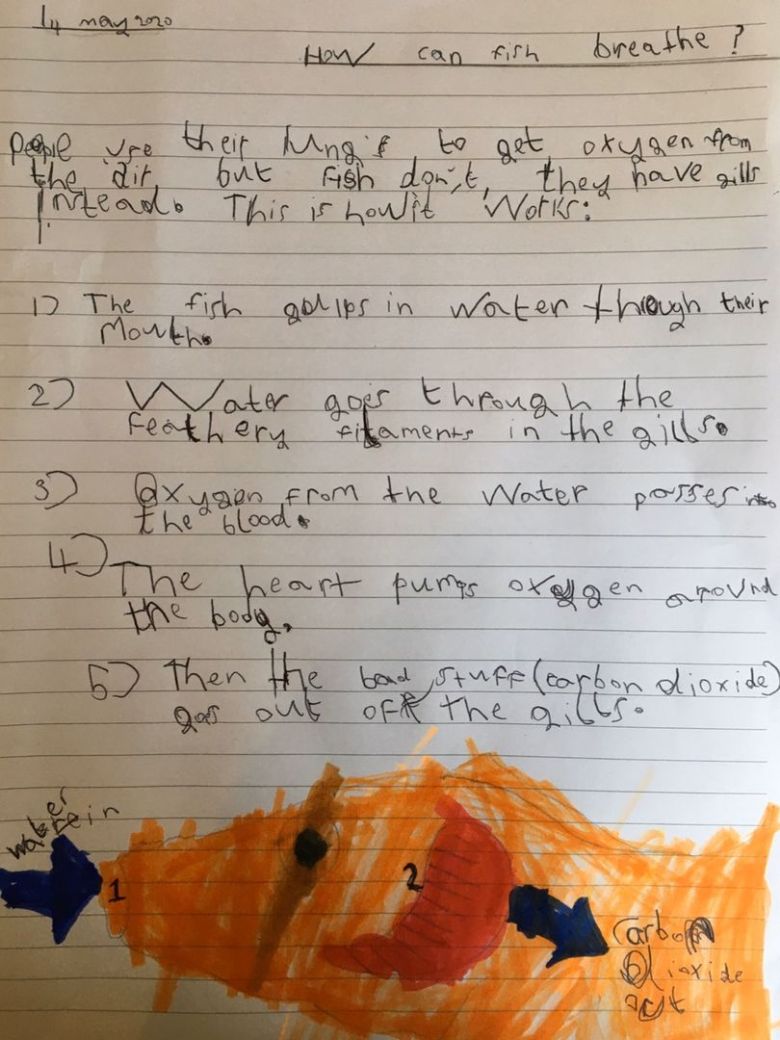 14 may 2020
How can fish breathe?
People use their lung's to get oxygen from
the air but fish don't, they have gills
Instead. This is how it Works:
1) The fish gaulps in water through their
Mouth.
2) Water goes through the
feathery filaments in the gills.
3) Oxygen from the Water passes into
the blood.
4) The heart pumps oxygen around
the body.
5) Then the bad stuff (carbon dioxide)
goes out off the gills.
water
in
1
2
Carbon
Dioxide
out